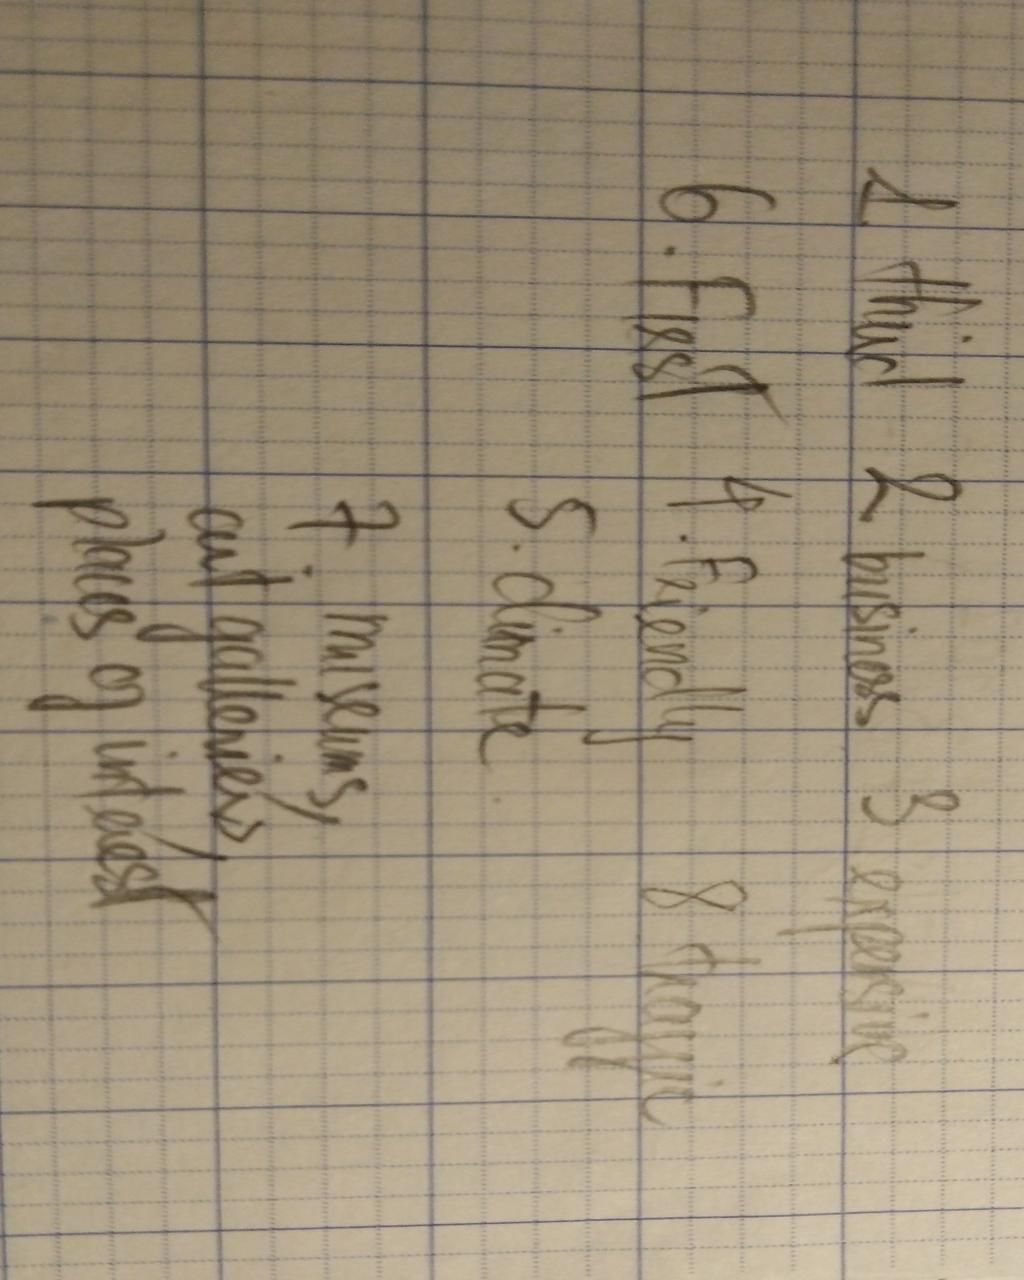 1 third 2 business 3 expensive
6. First 4. Friendly 8 traffic
5. climate
7. museums,
art galleries,
places of interest